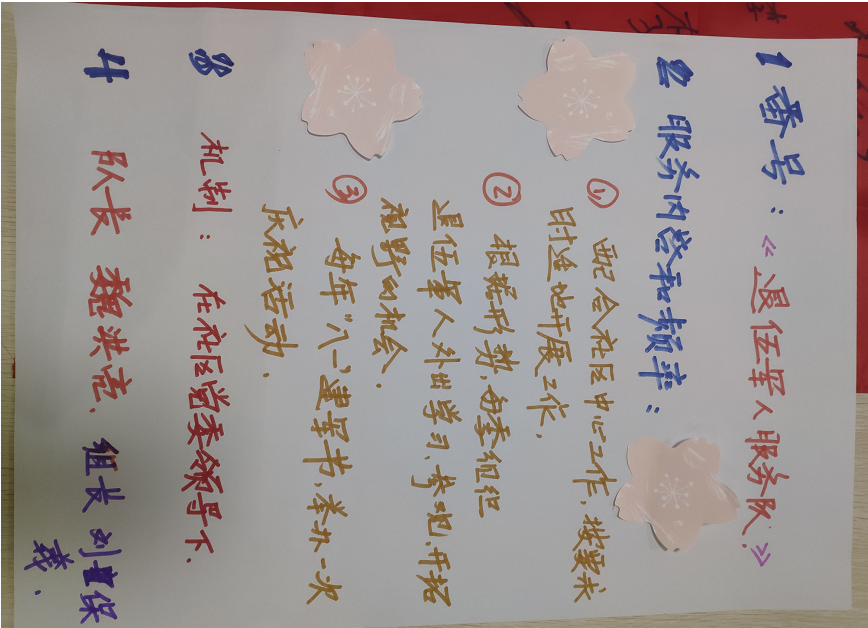 1 番号：《退伍军人服务队》
2 服务内容和频率：
① 配合社区中心工作，按要求
时速地开展工作，
② 根据形势，每季组织
退伍军人外出学习、参观、开拓
视野的机会．
③ 每年“八一”建军节，举办一次
庆祝活动．
3 机制：在社区党委领导下．
4 队长 魏洪．组长 刘保